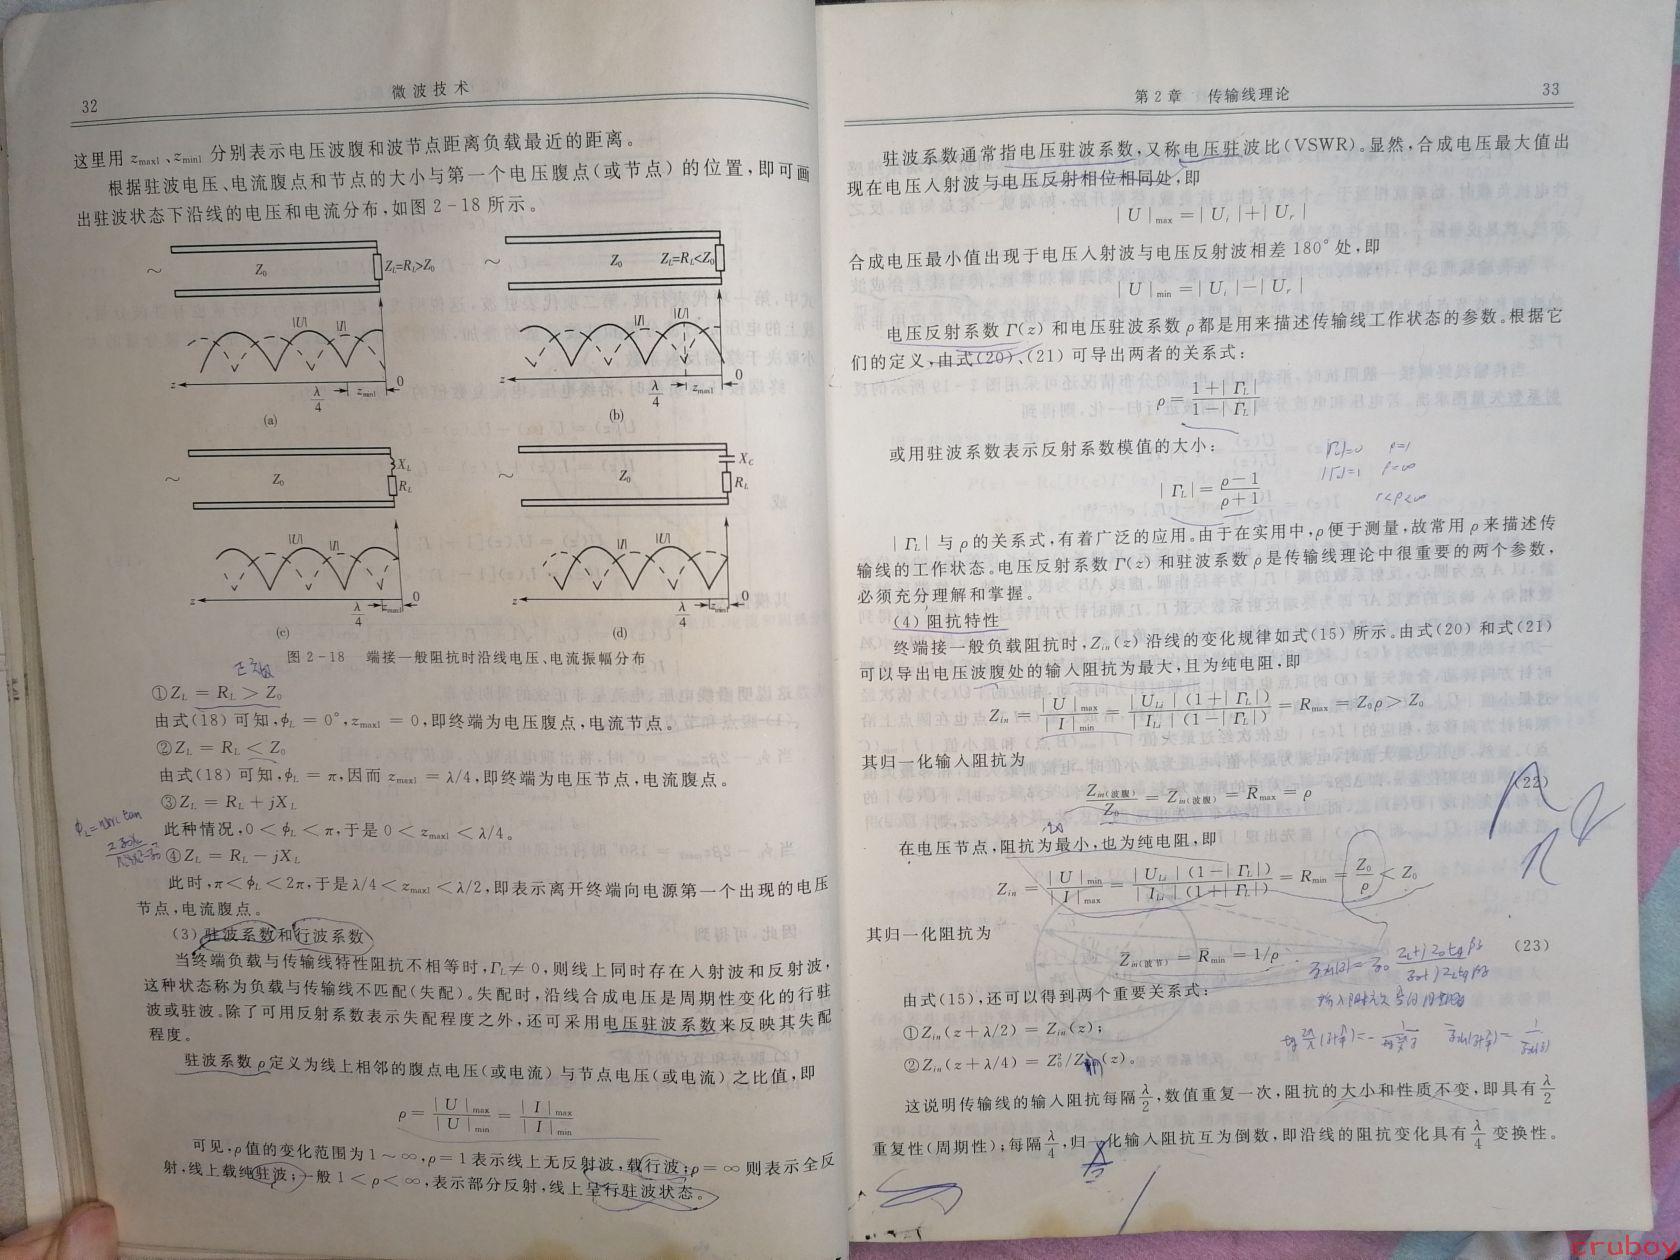 32
微波技术
这里用 zmax1、zmin1 分别表示电压波腹和波节点距离负载最近的距离。
根据驻波电压、电流腹点和节点的大小与第一个电压腹点(或节点)的位置,即可画
出驻波状态下沿线的电压和电流分布,如图 2-18 所示。
~ Z0 ZL=RL>Z0
|U| |I|
z λ/4 zmin1 0
(a)
~ Z0 ZL=RL<Z0
|I| |U|
z λ/4 zmax1 0
(b)
~ Z0 XL RL
|U| |I| |U|
z λ/4 zmax1 0
(c)
~ Z0 XC RL
|I| |U|
z λ/4 zmin1 0
(d)
图 2-18 端接一般阻抗时沿线电压、电流振幅分布
①ZL = RL > Z0
由式(18)可知,φL = 0°,zmax1 = 0,即终端为电压腹点,电流节点。
②ZL = RL < Z0
由式(18)可知,φL = π,因而 zmax1 = λ/4,即终端为电压节点,电流腹点。
③ZL = RL + jXL
此种情况,0 < φL < π,于是 0 < zmax1 < λ/4。
④ZL = RL - jXL
此时,π < φL < 2π,于是 λ/4 < zmax1 < λ/2,即表示离开终端向电源第一个出现的电压
节点,电流腹点。
(3)驻波系数和行波系数
当终端负载与传输线特性阻抗不相等时,ΓL ≠ 0,则线上同时存在入射波和反射波,
这种状态称为负载与传输线不匹配(失配)。失配时,沿线合成电压是周期性变化的行驻
波或驻波。除了可用反射系数表示失配程度之外,还可采用电压驻波系数来反映其失配
程度。
驻波系数 ρ 定义为线上相邻的腹点电压(或电流)与节点电压(或电流)之比值,即
ρ = |U|max/|U|min = |I|max/|I|min
可见,ρ 值的变化范围为 1~∞,ρ = 1 表示线上无反射波,载行波;ρ = ∞ 则表示全反
射,线上载纯驻波;一般 1 < ρ < ∞,表示部分反射,线上呈行驻波状态。
第 2 章 传输线理论
33
驻波系数通常指电压驻波系数,又称电压驻波比(VSWR)。显然,合成电压最大值出
现在电压入射波与电压反射相位相同处,即
|U|max = |Ui| + |Ur|
合成电压最小值出现于电压入射波与电压反射波相差 180° 处,即
|U|min = |Ui| - |Ur|
电压反射系数 Γ(z) 和电压驻波系数 ρ 都是用来描述传输线工作状态的参数。根据它
们的定义,由式(20)、(21)可导出两者的关系式:
ρ = (1+|ΓL|)/(1-|ΓL|)
或用驻波系数表示反射系数模值的大小:
|ΓL| = (ρ-1)/(ρ+1)
|ΓL|=0 ρ=1
|ΓL|=1 ρ=∞
1<ρ<∞
|ΓL| 与 ρ 的关系式,有着广泛的应用。由于在实用中,ρ 便于测量,故常用 ρ 来描述传
输线的工作状态。电压反射系数 Γ(z) 和驻波系数 ρ 是传输线理论中很重要的两个参数,
必须充分理解和掌握。
(4)阻抗特性
终端接一般负载阻抗时,Zin(z) 沿线的变化规律如式(15)所示。由式(20)和式(21)
可以导出电压波腹处的输入阻抗为最大,且为纯电阻,即
Zin = |U|max/|I|min = |ULi|(1+|ΓL|)/|ILi|(1-|ΓL|) = Rmax = Z0ρ > Z0
其归一化输入阻抗为
Zin(波腹)/Z0 = Zin(波腹) = Rmax = ρ (22)
在电压节点,阻抗为最小,也为纯电阻,即
Zin = |U|min/|I|max = |ULi|(1-|ΓL|)/|ILi|(1+|ΓL|) = Rmin = Z0/ρ < Z0
其归一化阻抗为
Zin(波节) = Rmin = 1/ρ (23)
由式(15),还可以得到两个重要关系式:
①Zin(z+λ/2) = Zin(z);
②Zin(z+λ/4) = Z0²/Zin(z)。
这说明传输线的输入阻抗每隔 λ/2,数值重复一次,阻抗的大小和性质不变,即具有 λ/2
重复性(周期性);每隔 λ/4,归一化输入阻抗互为倒数,即沿线的阻抗变化具有 λ/4 变换性。
cruboy